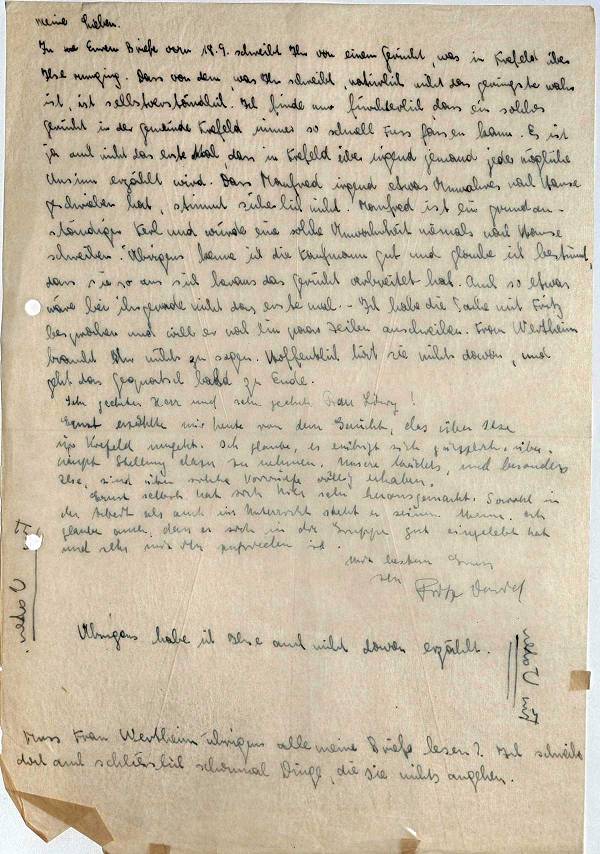 Meine Lieben.
In Eurem Briefe vom 18.9. schreibt Ihr von einem Gerücht, was in Krefeld über
Ilse umging. Dass von dem, was Ihr schreibt, natürlich nicht das geringste wahr
ist, ist selbstverständlich. Ich finde nur fürchterlich, dass ein solches
Gerücht in der Gemeinde Krefeld immer so schnell Fuss fassen kann. Es ist
ja auch nicht das erste Mal, dass in Krefeld über irgend jemand jeder mögliche
Unsinn erzählt wird. Dass Manfred irgend etwas Unwahres nach Hause
geschrieben hat, stimmt sicherlich nicht. Manfred ist ein grundan-
ständiger Kerl und würde eine solche Unwahrheit niemals nach Hause
schreiben. Übrigens kenne ich die Kaufmann gut und glaube ich bestimmt,
dass sie so aus sich heraus das Gerücht verbreitet hat. Auch so etwas
wäre bei ihr gerade nicht das erste mal. - Ich habe die Sache mit Fritz
besprochen und will er noch ein paar Zeilen anschreiben. Frau Wertheim
braucht Ihr nichts zu sagen. Hoffentlich hört sie nichts davon, und
geht das Gequatsch bald zu Ende.
Sehr geehrter Herr und sehr geehrte Frau
Ernst erzählte mir heute von dem Gerücht, das über Ilse
in Krefeld umgeht. Ich glaube, es erübrigt sich gänzlich, über-
haupt Stellung dazu zu nehmen. Unsere Mädels, und besonders
Ilse, sind über solche Vorwürfe völlig erhaben.
Ernst selbst hat sich hier sehr herausgemacht. Sowohl in
der Arbeit als auch im Unterricht steht er seinen Mann. Ich
glaube auch, dass er sich in die Gruppe gut eingelebt hat
und alles mit ihm zufrieden ist.
Mit bestem Gruss
Ihr
Fritz
Übrigens habe ich Ilse auch nicht davon erzählt.
Muss Frau Wertheim übrigens alle meine Briefe lesen? Ich schreibe
doch auch schliesslich schonmal Dinge, die sie nichts angehen.